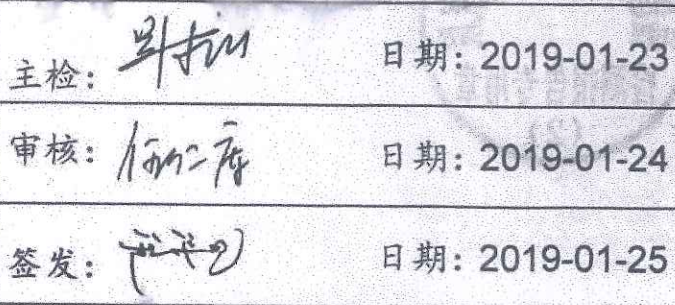 主检： 日期：2019-01-23
审核： 日期：2019-01-24
签发： 日期：2019-01-25